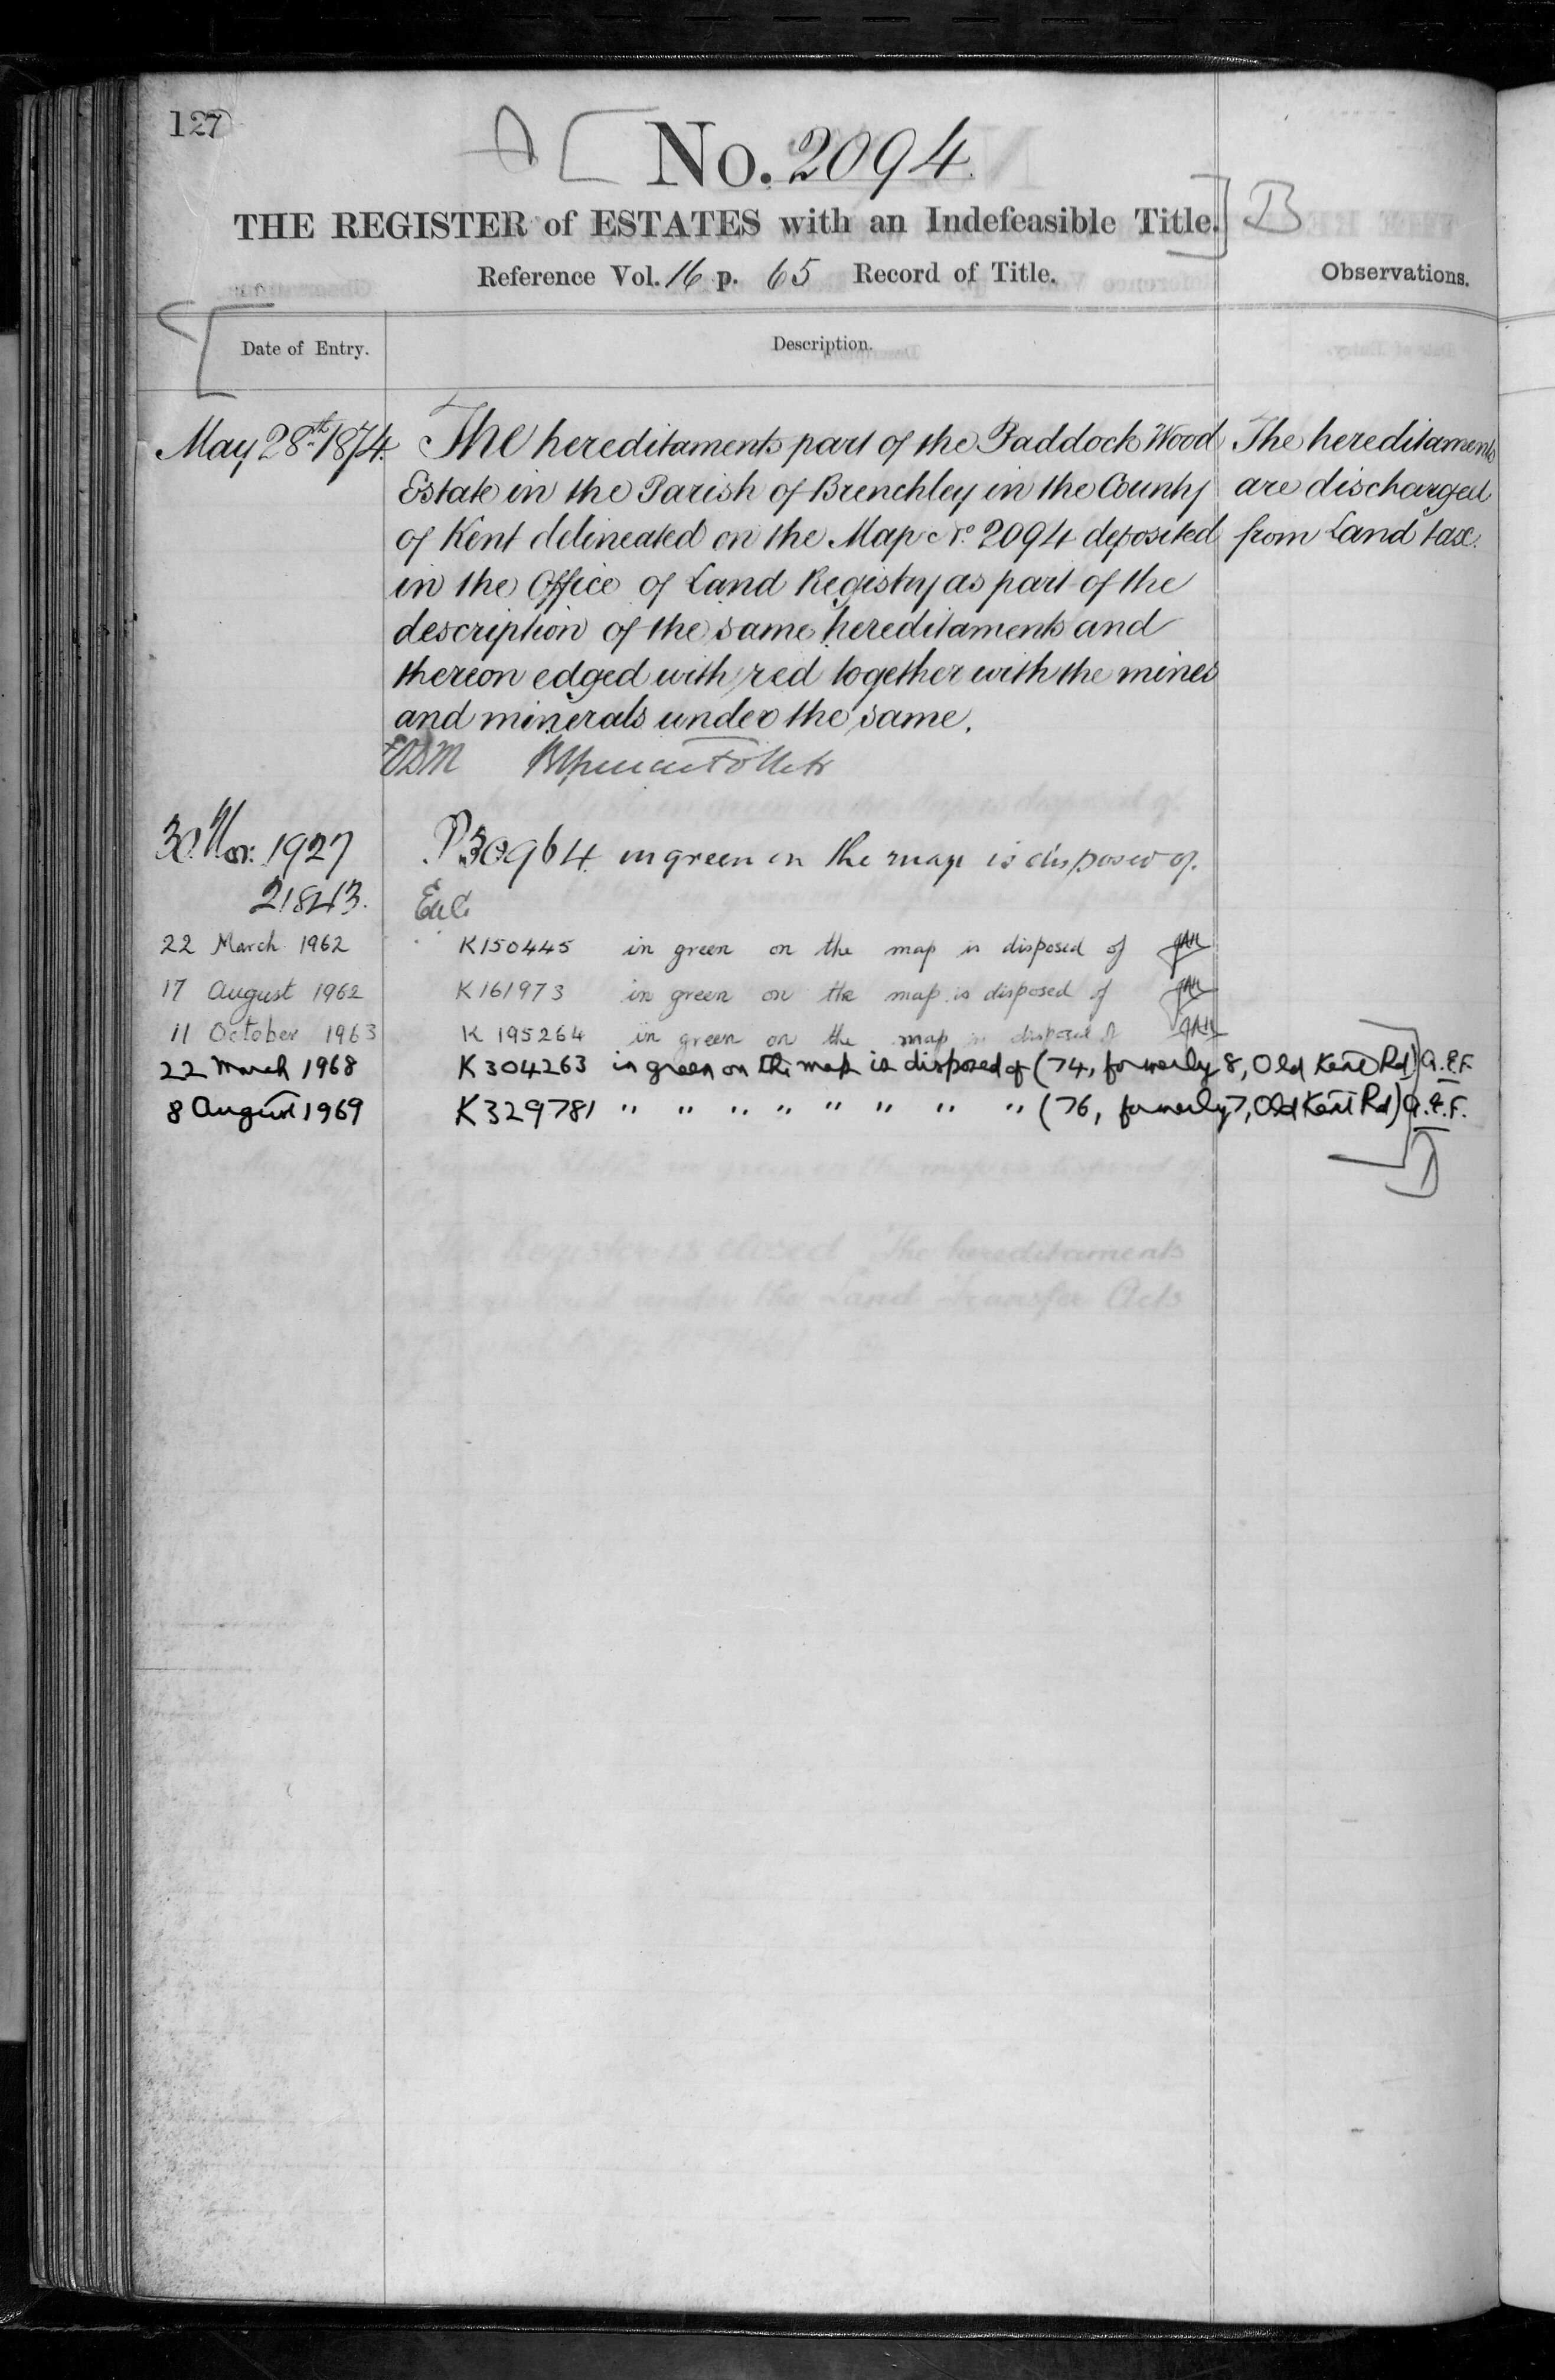 127
A
No. 2094.
THE REGISTER of ESTATES with an Indefeasible Title.
B
Reference Vol. 16 p. 65 Record of Title.
Observations.
Date of Entry.
Description.
May 28th 1874.
The hereditaments part of the Paddock Wood
Estate in the Parish of Brenchley in the County
of Kent delineated on the Map No. 2094 deposited
in the Office of Land Registry as part of the
description of the same hereditaments and
thereon edged with red together with the mines
and minerals under the same.
The hereditaments
are discharged
from Land tax.
30. Nov: 1927
21843.
P30964 in green on the map is disposed of.
22 March 1962 K150445 in green on the map is disposed of
17 August 1962 K161973 in green on the map is disposed of
11 October 1963 K195264 in green on the map is disposed of
22 March 1968 K304263 in green on the map is disposed of (74, formerly 8, Old Kent Rd) A.E.F.
8 August 1969 K329781 " " " " " " " " (76, formerly 7, Old Kent Rd) A.E.F.
D
The Register is closed The hereditaments
under the Land Transfer Acts